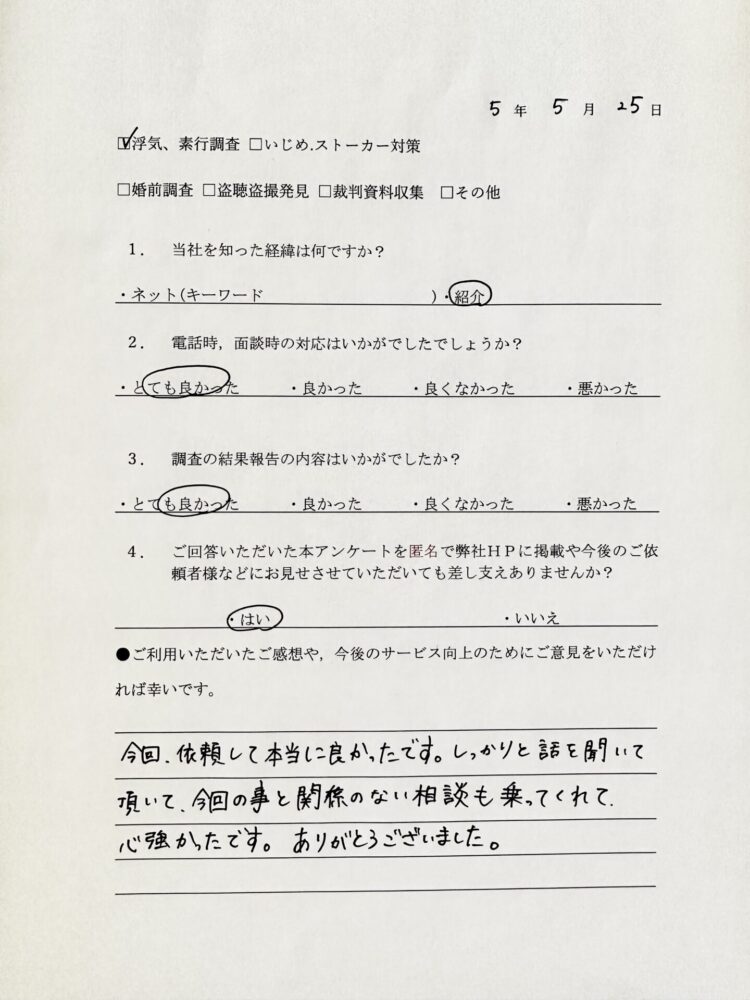 5年 5月 25日
☑浮気、素行調査 □いじめ.ストーカー対策
□婚前調査 □盗聴盗撮発見 □裁判資料収集 □その他
1. 当社を知った経緯は何ですか?
・ネット(キーワード )・紹介
2. 電話時,面談時の対応はいかがでしたでしょうか?
・とても良かった ・良かった ・良くなかった ・悪かった
3. 調査の結果報告の内容はいかがでしたか?
・とても良かった ・良かった ・良くなかった ・悪かった
4. ご回答いただいた本アンケートを匿名で弊社HPに掲載や今後のご依
頼者様などにお見せさせていただいても差し支えありませんか?
・はい ・いいえ
●ご利用いただいたご感想や,今後のサービス向上のためにご意見をいただけ
れば幸いです。
今回、依頼して本当に良かったです。しっかりと話を聞いて
頂いて、今回の事と関係のない相談も乗ってくれて、
心強かったです。ありがとうございました。